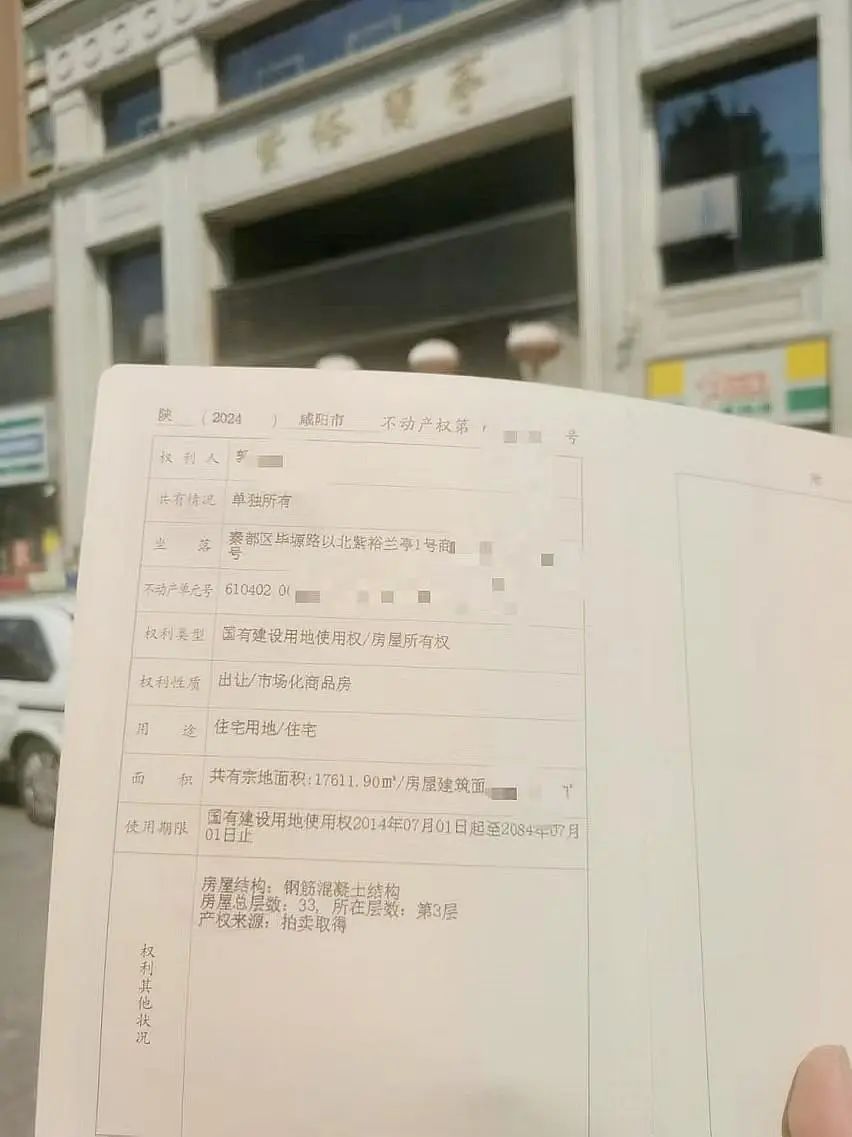 紫裕蘭亭
陕 (2024 ) 咸阳市 不动产权第 号
权利人 郭
共有情况 单独所有
坐落 秦都区毕塬路以北紫裕兰亭1号商
号
不动产单元号 610402 0
权利类型 国有建设用地使用权/房屋所有权
权利性质 出让/市场化商品房
用途 住宅用地/住宅
面积 共有宗地面积:17611.90㎡/房屋建筑面
使用期限 国有建设用地使用权2014年07月01日起至2084年07月
01日止
权利其他状况
房屋结构：钢筋混凝土结构
房屋总层数：33，所在层数：第3层
产权来源：拍卖取得
附